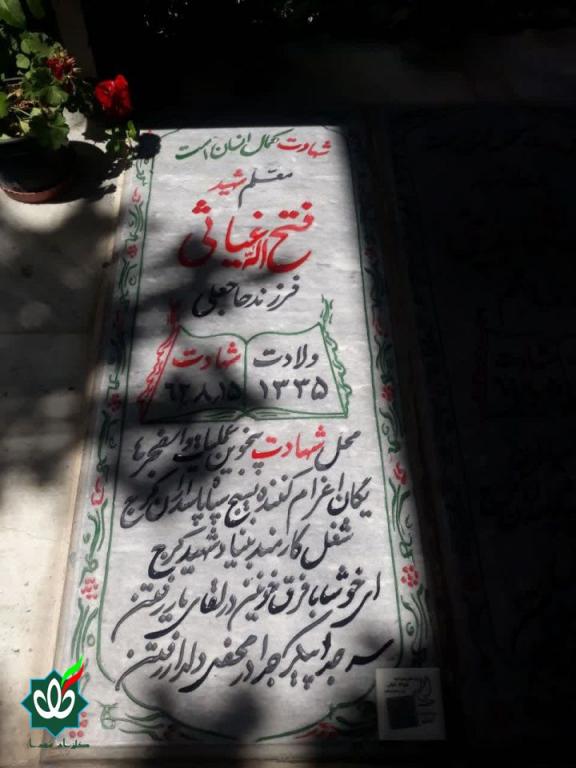 شهادت کمال انسان است
معلم شهید
فتح اله غیاثی
فرزند حاجعلی
ولادت ۱۳۳۵
شهادت ۶۲٫۸٫۱۵
محل شهادت پنجوین عملیات والفجر ۴
یگان اعزام کننده بسیج سپاه پاسداران کرج
شغل کارمند بنیاد شهید کرج
ای خوشا با فرق خونین در لقای یار رفتن
سر جدا پیکر جدا در محفل دلدار رفتن